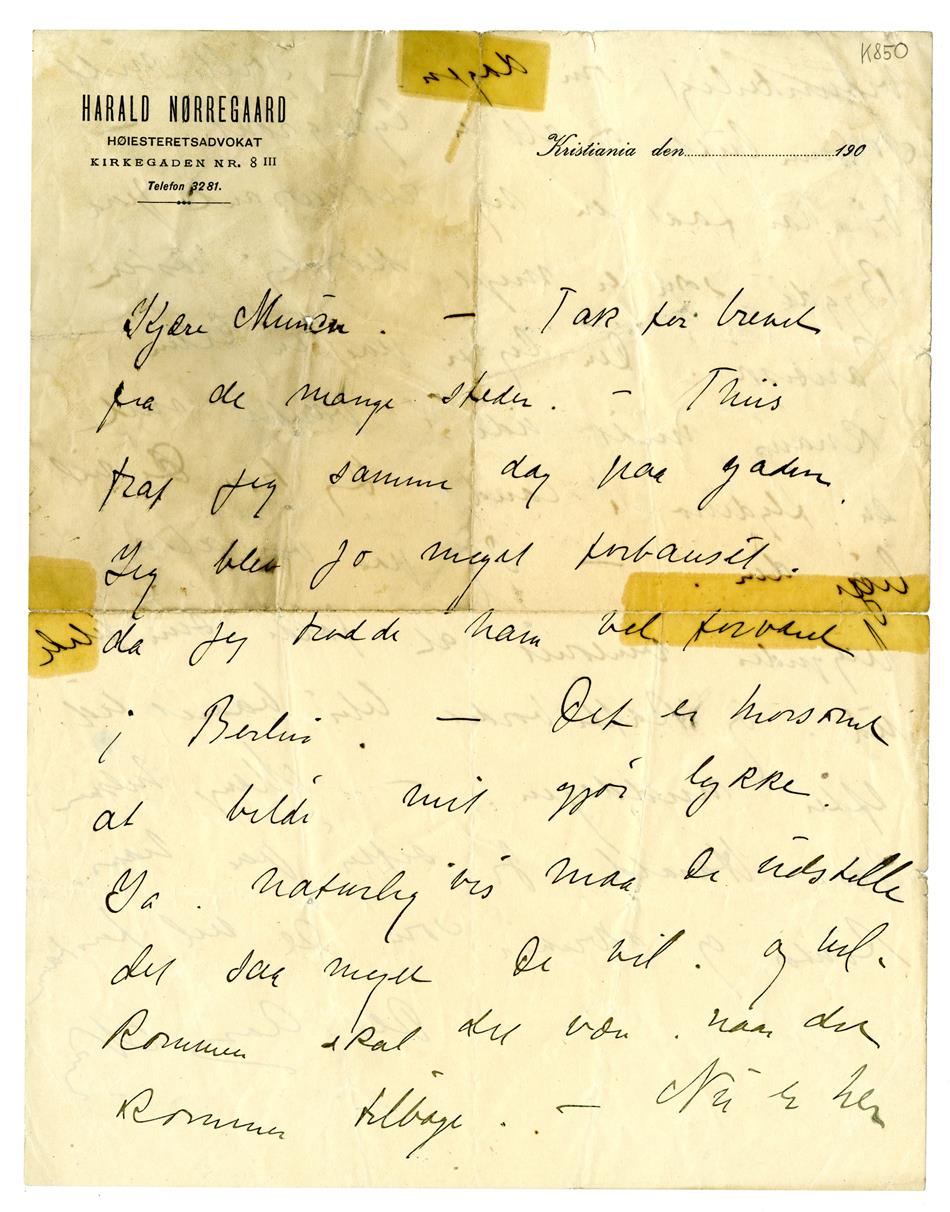 K850
HARALD NØRREGAARD
HØIESTERETSADVOKAT
KIRKEGADEN NR. 8 III
Telefon 3281.
Kristiania den 190
Kjære Munch. – Tak for brevet
fra de mange steder. – Thiis
traf jeg samme dag paa gaden.
Jeg blev jo meget forbauset
da jeg trodde ham vel forvaret
i Berlin. – Det er morsomt
at bilde mit gjør lykke.
Ja. naturligvis maa De udstille
det saa meget De vil. og vel-
kommen skal det være. naar det
kommer tilbage. – Nu er her